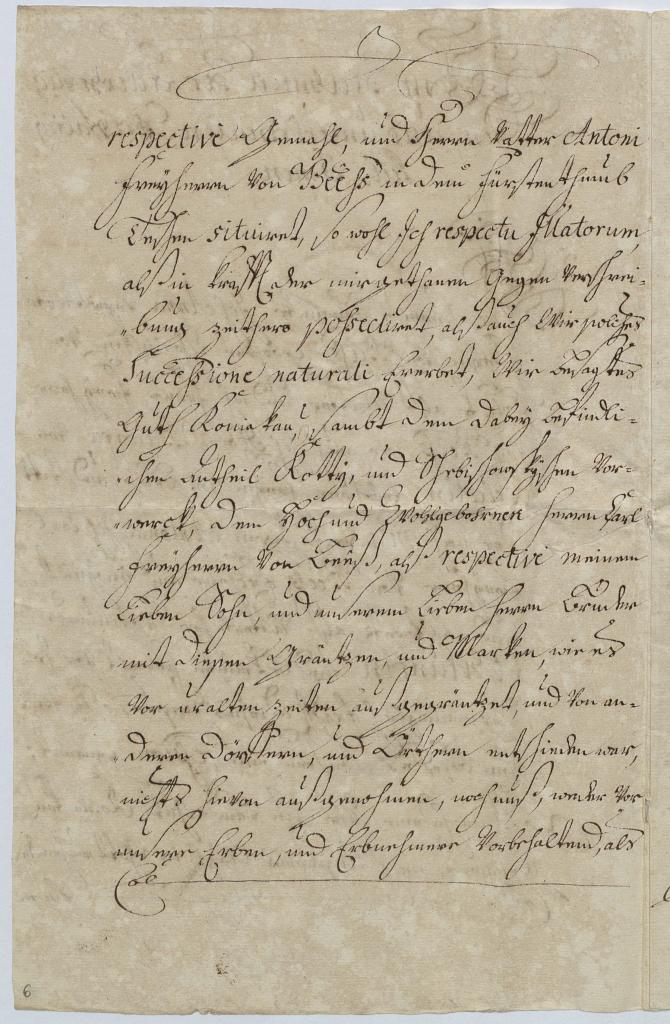 respectivè Gemahl, und Herrn Vatter Antoni
Freyherrn von Beehs in dem Fürstenthumb
Teschen situiret, so wohl Ich respectu Illatorum,
alß in krafft der mir gethanen Gegen Verschrei-
bung zeithero possediret, alß auch Wir solches
Successione naturali Ererbet, Wir besagtes
Guth Koniakau, sambt dem dabey befindli-
chen antheil Kotty, und Schebischowskyschen Vor-
werck, dem Hoch und Wohlgebohrnen Herrn Carl
Freyherrn von Beeß, alß respectivè meinem
Lieben Sohn, und unserem Lieben Herrn Bruder
mit diesen Gräntzen, und Marken, wie es
Vor uralten zeiten außgegräntzet, und von an-
deren Dörffern, und Örthern entschieden war,
nichts hievon außgenohmen, noch unß, weder Vor
unsere Erben, und Erbnehmere Vorbehaltend, als
6